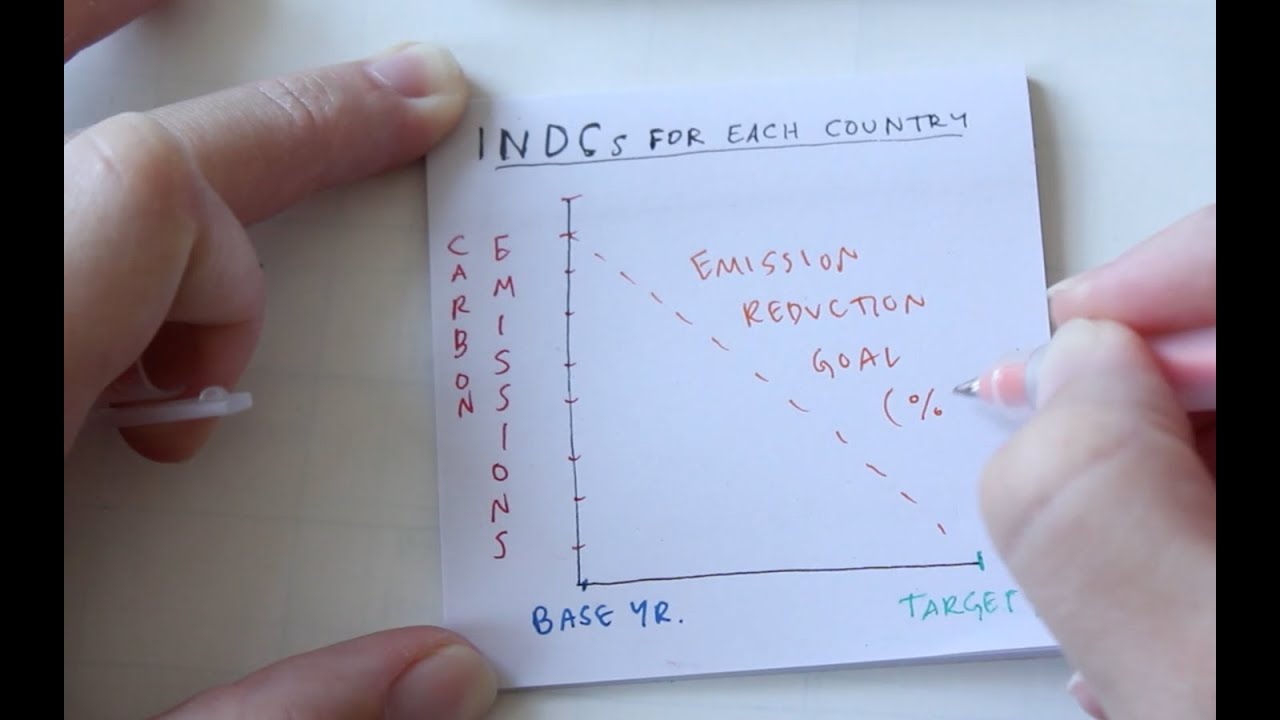 INDCs FOR EACH COUNTRY
CARBON
EMISSIONS
EMISSION
REDUCTION
GOAL
(%
BASE YR.
TARGET